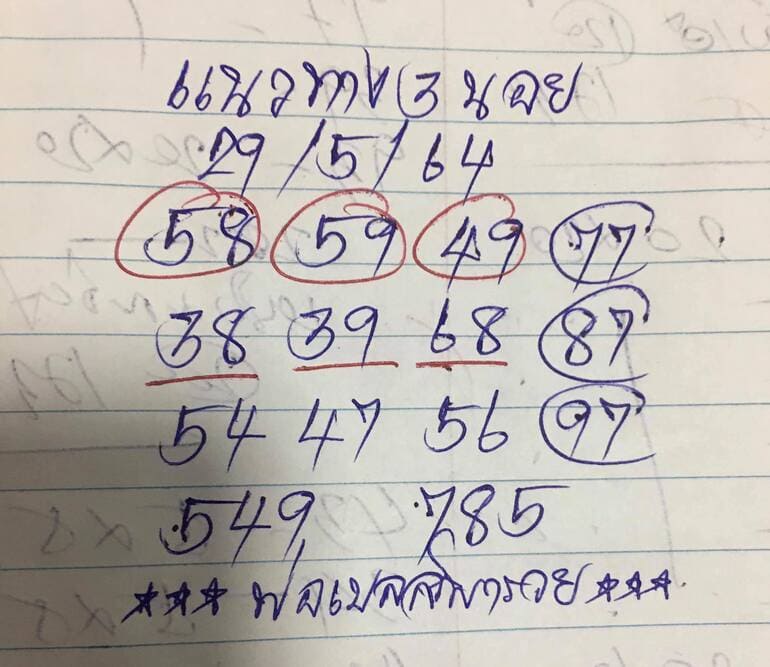 แนวทาง 3 นอย
29/5/64
58 59 49 77
38 39 68 87
54 47 56 97
549 785
*** พ่อเบลล์พารวย ***